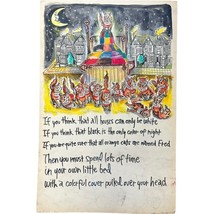 If you think that all houses can only be white
If you think that black is the only color of night
If you are quite sure that all orange cats are named Fred
Then you must spend lots of time
in your own little bed
with a colorful cover pulled over your head.